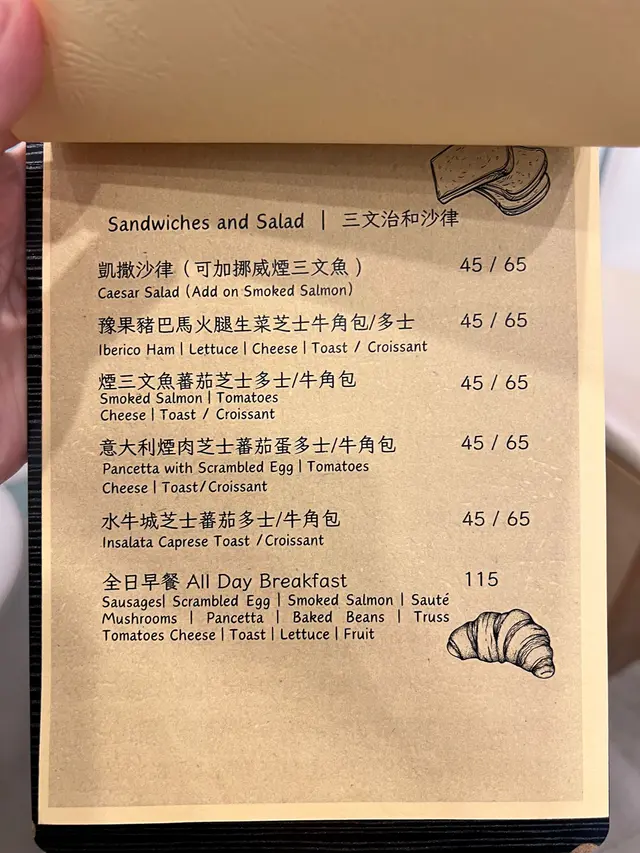 Sandwiches and Salad | 三文治和沙律
凱撒沙律（可加挪威煙三文魚） 45 / 65
Caesar Salad (Add on Smoked Salmon)
豫果豬巴馬火腿生菜芝士牛角包/多士 45 / 65
Iberico Ham | Lettuce | Cheese | Toast / Croissant
煙三文魚蕃茄芝士多士/牛角包 45 / 65
Smoked Salmon | Tomatoes
Cheese | Toast / Croissant
意大利煙肉芝士蕃茄蛋多士/牛角包 45 / 65
Pancetta with Scrambled Egg | Tomatoes
Cheese | Toast/Croissant
水牛城芝士蕃茄多士/牛角包 45 / 65
Insalata Caprese Toast /Croissant
全日早餐 All Day Breakfast 115
Sausages| Scrambled Egg | Smoked Salmon | Sauté
Mushrooms | Pancetta | Baked Beans | Truss
Tomatoes Cheese | Toast | Lettuce | Fruit